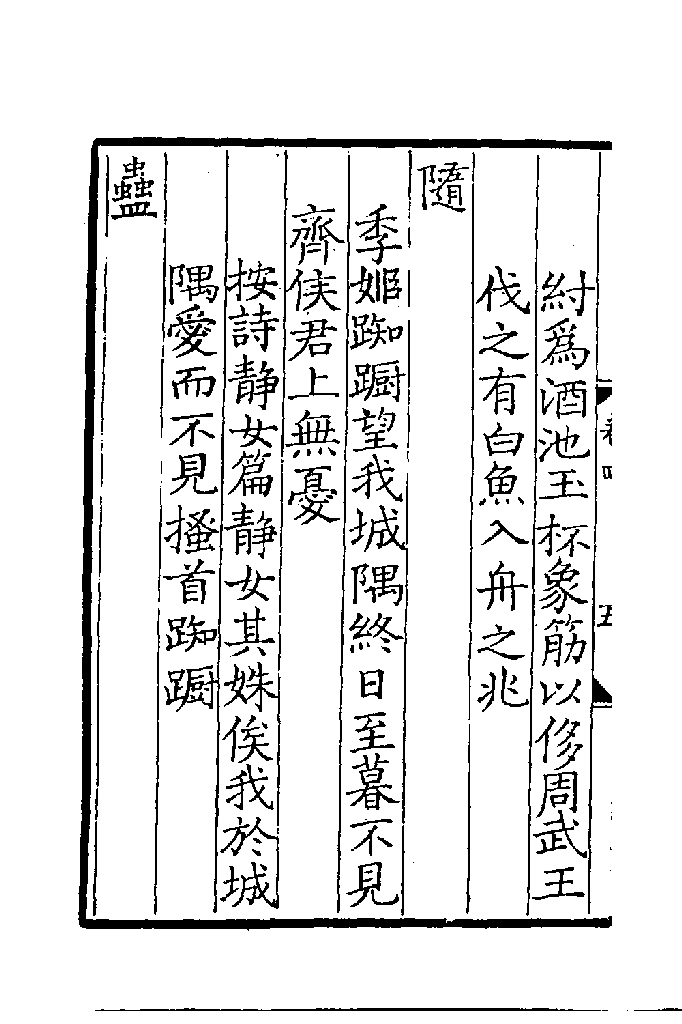 紂為酒池玉杯象筯以侈周武王
伐之有白魚入舟之兆
隨
季姬踟蹰望我城隅終日至暮不見
齊侯君上無憂
按詩静女篇静女其姝俟我於城
隅愛而不見搔首踟蹰
蠱
卷四
五